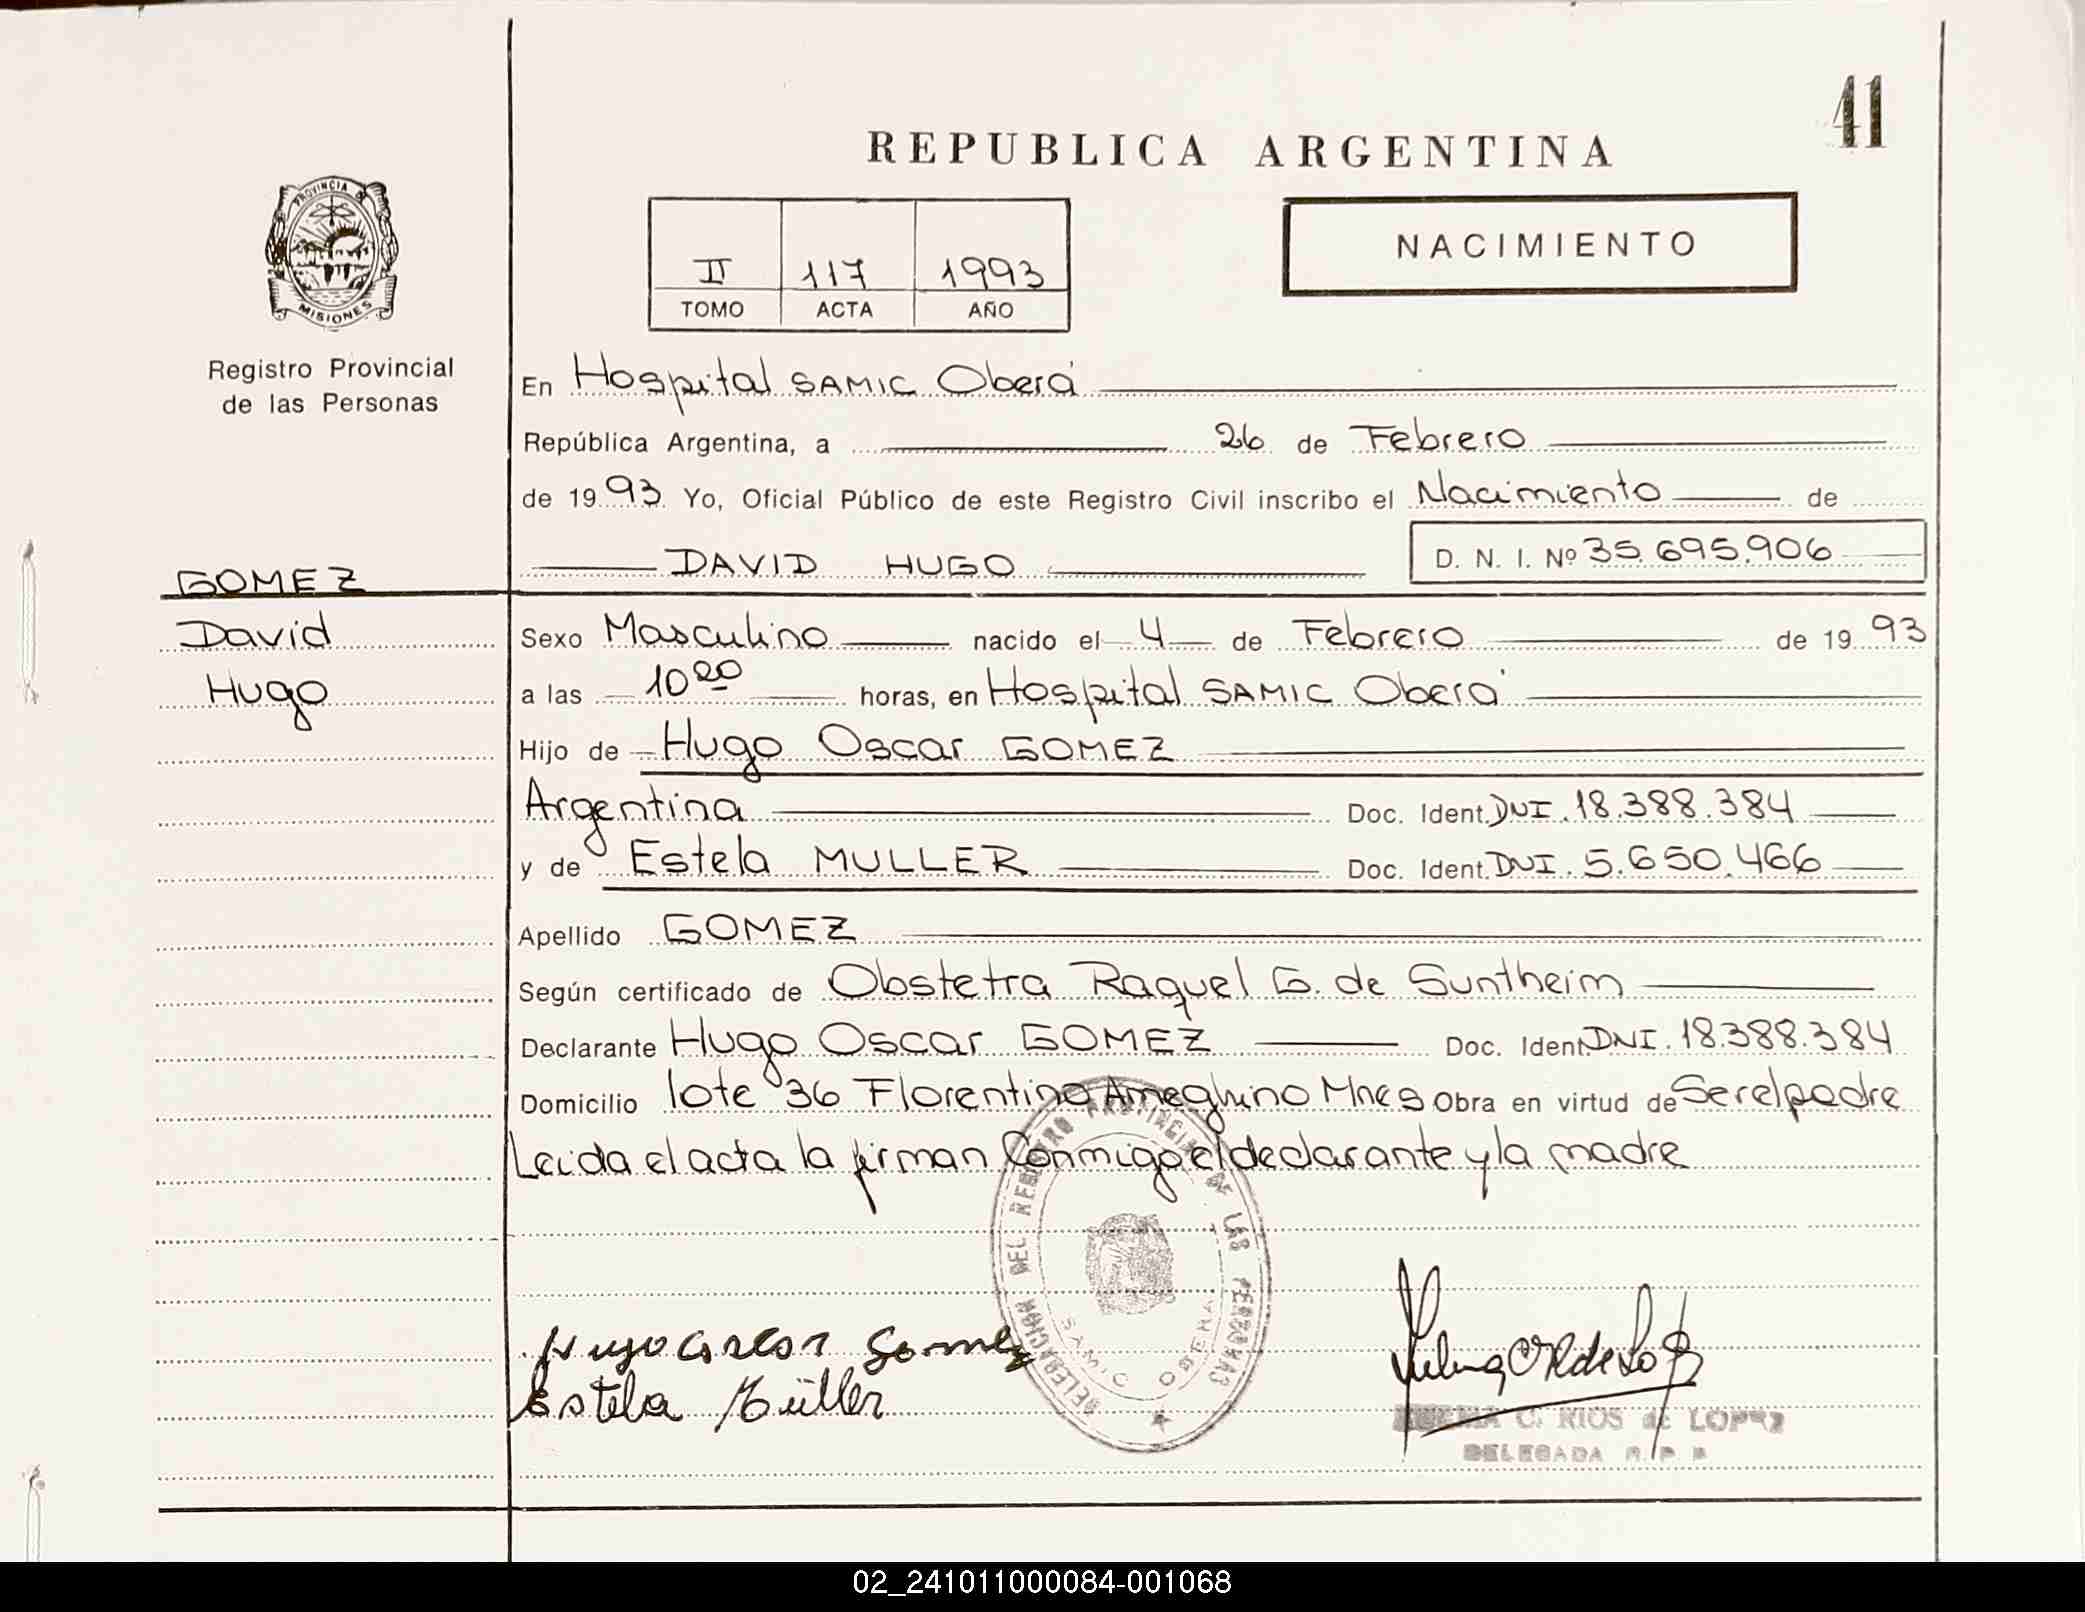 41
REPUBLICA ARGENTINA
PROVINCIA DE
MISIONES
Registro Provincial
de las Personas
II 117 1993
TOMO ACTA AÑO
NACIMIENTO
En Hospital SAMIC Oberá
República Argentina, a 26 de Febrero
de 1993 Yo, Oficial Público de este Registro Civil inscribo el Nacimiento de
DAVID HUGO D. N. I. Nº 35.695.906
GOMEZ
David
Hugo
Sexo Masculino nacido el 4 de Febrero de 1993
a las 10 20 horas, en Hospital SAMIC Oberá
Hijo de Hugo Oscar GOMEZ
Argentina Doc. Ident. DNI. 18.388.384
y de Estela MULLER Doc. Ident. DNI. 5.650.466
Apellido GOMEZ
Según certificado de Obstetra Raquel G. de Suntheim
Declarante Hugo Oscar GOMEZ Doc. Ident. DNI. 18.388.384
Domicilio lote 36 Florentino Ameghino Mnes Obra en virtud de Ser el padre
Leida el acta la firman Conmigo el declarante y la madre
DELEGACION DEL REGISTRO PROVINCIAL DE LAS PERSONAS
SAMIC OBERA
Gomez
Estela Müller
C. RIOS de LOPEZ
DELEGADA R. P. P.
02_241011000084-001068